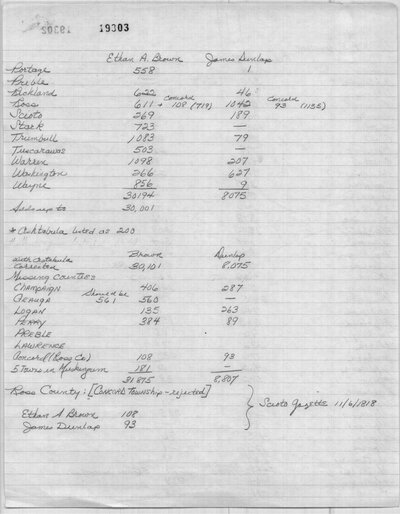 19303 19303
Ethan A. Brown James Dunlap
Portage 558 1
Preble
Richland 622 46
Ross 611 + Concord 108 (719) 1042 Concord 93 (1135)
Scioto 269 189
Stark 723 —
Trumbull 1083 79
Tuscarawas 503 —
Warren 1098 207
Washington 266 627
Wayne 856 9
30194 8075
Adds up to 30,001
* Ashtabula listed as 200
" "
with Ashtabula Brown Dunlap
corrected 30,101 8,075
Missing Counties
Champaign 406 287
Geauga should be 561 560 —
Logan 135 263
Perry 384 89
Preble
Lawrence
Concord (Ross Co) 108 93
5 Towns in Muskingum 181 —
31,875 8,807
Ross County: [Concord Township - rejected]
Ethan A Brown 108
James Dunlap 93
Scioto Gazette 11/6/1818